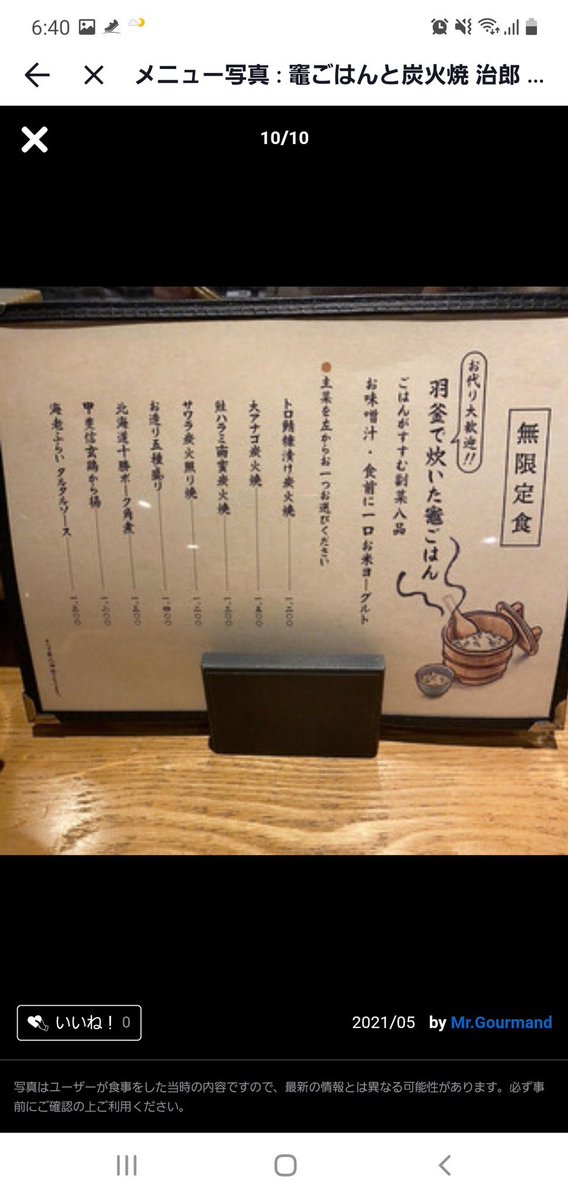 6:40
メニュー写真 : 竈ごはんと炭火焼 治郎 ...
10/10
無限定食
お代り大歓迎!!
羽釜で炊いた竈ごはん
ごはんがすすむ副菜八品
お味噌汁・食前に一口お米ヨーグルト
●主菜を左からお一つお選びください
トロ鯖糠漬け炭火焼 一、二〇〇
大アナゴ炭火焼 一、五〇〇
鮭ハラミ南蛮炭火焼 一、二〇〇
サワラ炭火照り焼 一、二〇〇
お造り五種盛り 一、四〇〇
北海道十勝ポーク角煮 一、三〇〇
甲斐信玄鶏から揚 一、二〇〇
海老ふらい タルタルソース 一、三〇〇
いいね！ 0
2021/05 by Mr.Gourmand
写真はユーザーが食事をした当時の内容ですので、最新の情報とは異なる可能性があります。必ず事
前にご確認の上ご利用ください。